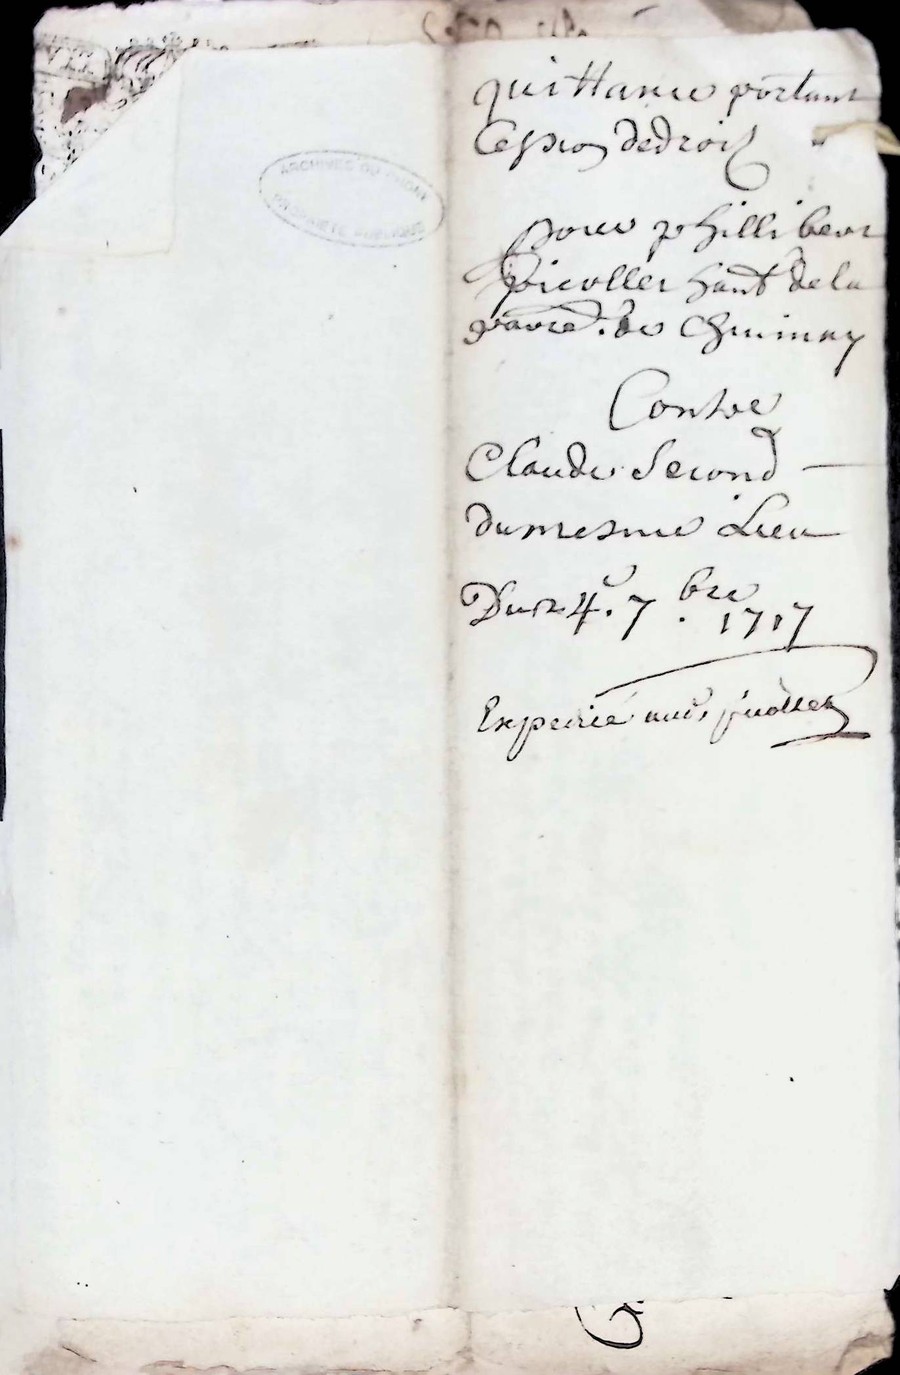 ARCHIVES DU RHONE
PROPRIETE PUBLIQUE
quittance portant
Cession de droit
pour phillibert
picollet hant de la
parr.e de Chuinay
Contre
Claude Second
du mesme Lieu
Du 4.e 7.bre 1717
Expediée